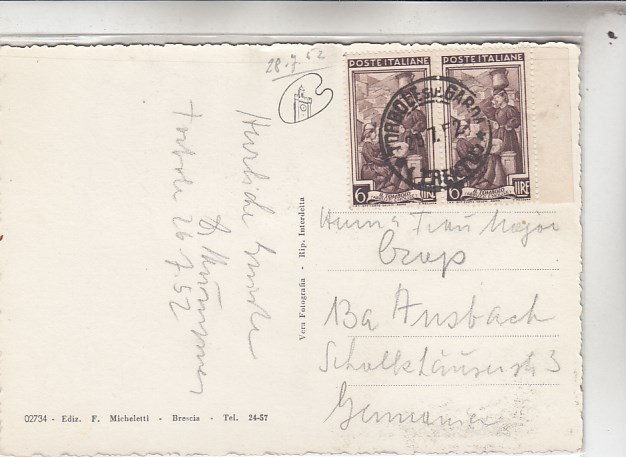 28.7 52
Herzliche Grüsse
Torbole 26.7.52
Vera Fotografia - Rip. Interdetta
02734 - Ediz. F. Micheletti - Brescia - Tel. 24-57
POSTE ITALIANE
POSTE ITALIANE
TORBOLE SUL GARDA
(TRENTO)
6 LIRE
6 LIRE
Frau Major
13a Ansbach
3
Germania